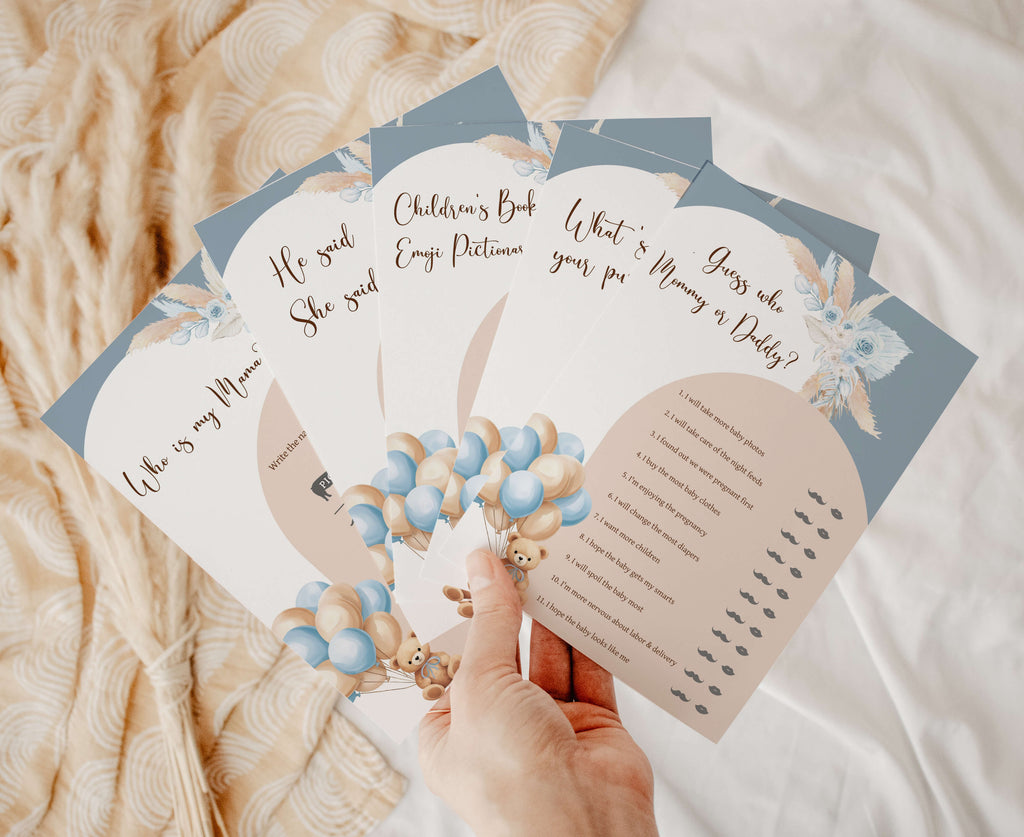 Who is my Mama?
Write the
He said
She said
Children's Book
Emoji
What's
your
Guess who
Mommy or Daddy?
1. I will take more baby photos
2. I will take care of the night feeds
3. I found out we were pregnant first
4. I buy the most baby clothes
5. I'm enjoying the pregnancy
6. I will change the most diapers
7. I want more children
8. I hope the baby gets my smarts
9. I will spoil the baby most
10. I'm more nervous about labor & delivery
11. I hope the baby looks like me